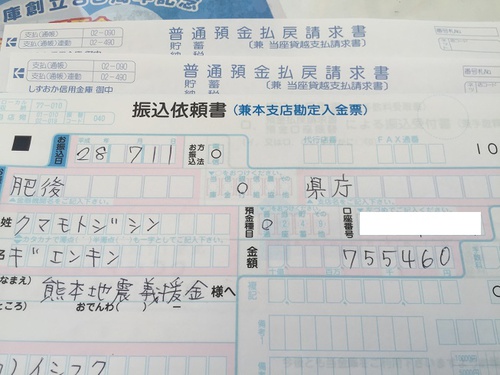 支払(通帳) 02-090
支払(通帳)連動 02-490
普通預金払戻請求書
貯蓄 (兼 当座貸越支払請求書)
支払(通帳) 02-090
支払(通帳)連動 02-490
しずおか信用金庫 御中
普通預金払戻請求書
貯蓄 (兼 当座貸越支払請求書)
040
振込依頼書 (兼本支店勘定入金票)
お振込日 平成 28 7 11 お振込方法 代行送組 FAX通番 10
肥後 県庁
クマモトジシン 預金種目 口座番号
ギエンキン 金額 755460
なまえ) 熊本地震義援金 様へ
ところ) おでんわ( ) ー
イシマク